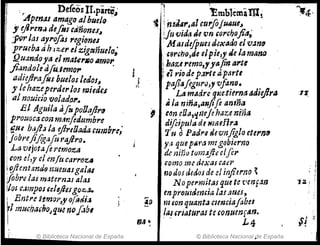 Defeos II.parte,
Apenas amago al buelo
y estrena de sus cañones,
por las ayrosas regiones
prueba à hazer el ziguñuelo,
Quando ya el materno amor,
fiandole à su temor
adiestra sus buelos ledos,
y le haze perder los miedos
al nouicio volador.
Assi Aguila à su pollastro
prouoca con mansedumbre
que hasta la estrellada cumbre,
sobre sigafu rastro.
La vejota se remoza
con el, y el en su carroza
ostentando nueuas galas
sobre las maternas alas
los campos celestes goza.
Entre temor, y osadia
el muchacho, que no sabe
na-
Emblema III,
nadar, al curso suaue,
su vida de vn corcho fia,
Mas despues dexado el vano
corcho, de el pie, y de la mano
haze remo, y ya sin arte
el rio de parte à parte
passa seguro, y vfano.
La madre que tierna adiestra
à la niña, assise ansiña
con ella, que se haze niña
discipula de maestra
Tu ò Padre de vn siglo eterno
ya que para mi gobierno
de niño tomaste el ser
como me dexas caer
no dos dedos de el infierno?
No permitas que te vençan
en prouidencia las aues,
ni con quanta ciencia sabes
las criaturas te conuençan.
L4
Si
10
20
12
© Biblioteca Nacional de España
© Biblioteca Nacional de España